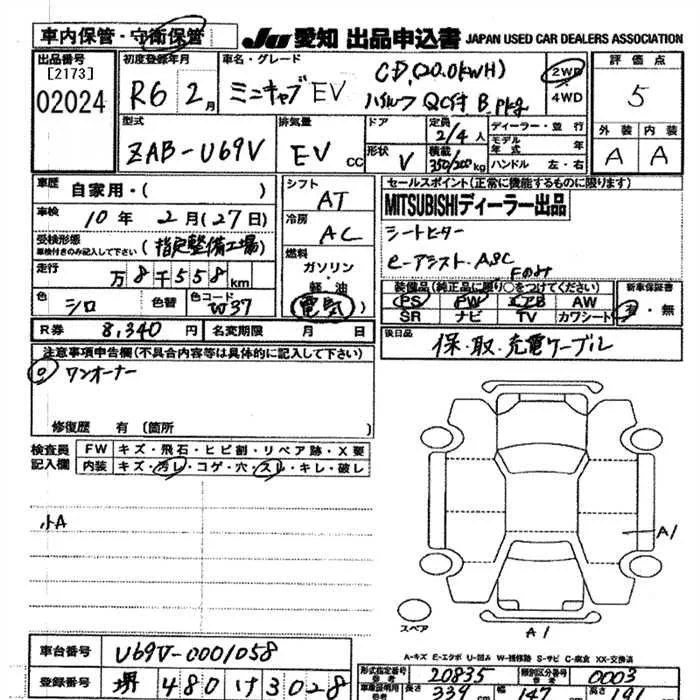 車内保管・守衛保管
JU 愛知 出品申込書 JAPAN USED CAR DEALERS ASSOCIATION
出品番号
[2173]
02024
初度登録年月
R6 2月
車名・グレード
ミニキャブEV
CD(20.0kWH)
ハイルーフ QC付 B.pkg
2WD
4WD
評価点
5
外装 内装
A A
型式
ZAB-U69V
排気量
EV cc
ドア
形状
V
定員
2/4人
積載
350/200kg
ディーラー・並行
モデル年式 年
ハンドル 左・右
車歴
自家用・( )
車検
10年 2月(27日)
受検形態
車検付きのみ記入して下さい
(指定整備工場)
走行
万8千558km
色
シロ
色替
色コード
W37
シフト
AT
冷房
AC
燃料
ガソリン・
軽・油
電気
R券 8,340円 名変期限 月 日
セールスポイント(正常に機能するものに限ります)
MITSUBISHIディーラー出品
シートヒーター
e-アシスト・ASC
Fのみ
装備品(純正品に限り○をつけてください)
PS PW エアB AW
SR ナビ TV カワシート
新車保証書
有・無
後日品
保・取・充電ケーブル
注意事項申告欄(不具合内容等は具体的に記入して下さい)
ワンオーナー
修復歴 有〔箇所 〕
検査員記入欄
FW キズ・飛石・ヒビ割・リペア跡・X要
内装 キズ・汚レ・コゲ・穴・スレ・キレ・破レ
小A
A1
スペア
A1
A-キズ E-エクボ U-凹み W-補修跡 S-サビ C-腐食 XX-交換済
車台番号
U69V-0001058
登録番号
堺 480 け 3028
形式指定番号
参考
20835
類別区分番号
参考
0003
車庫証明用
参考
長さ
339
幅
147